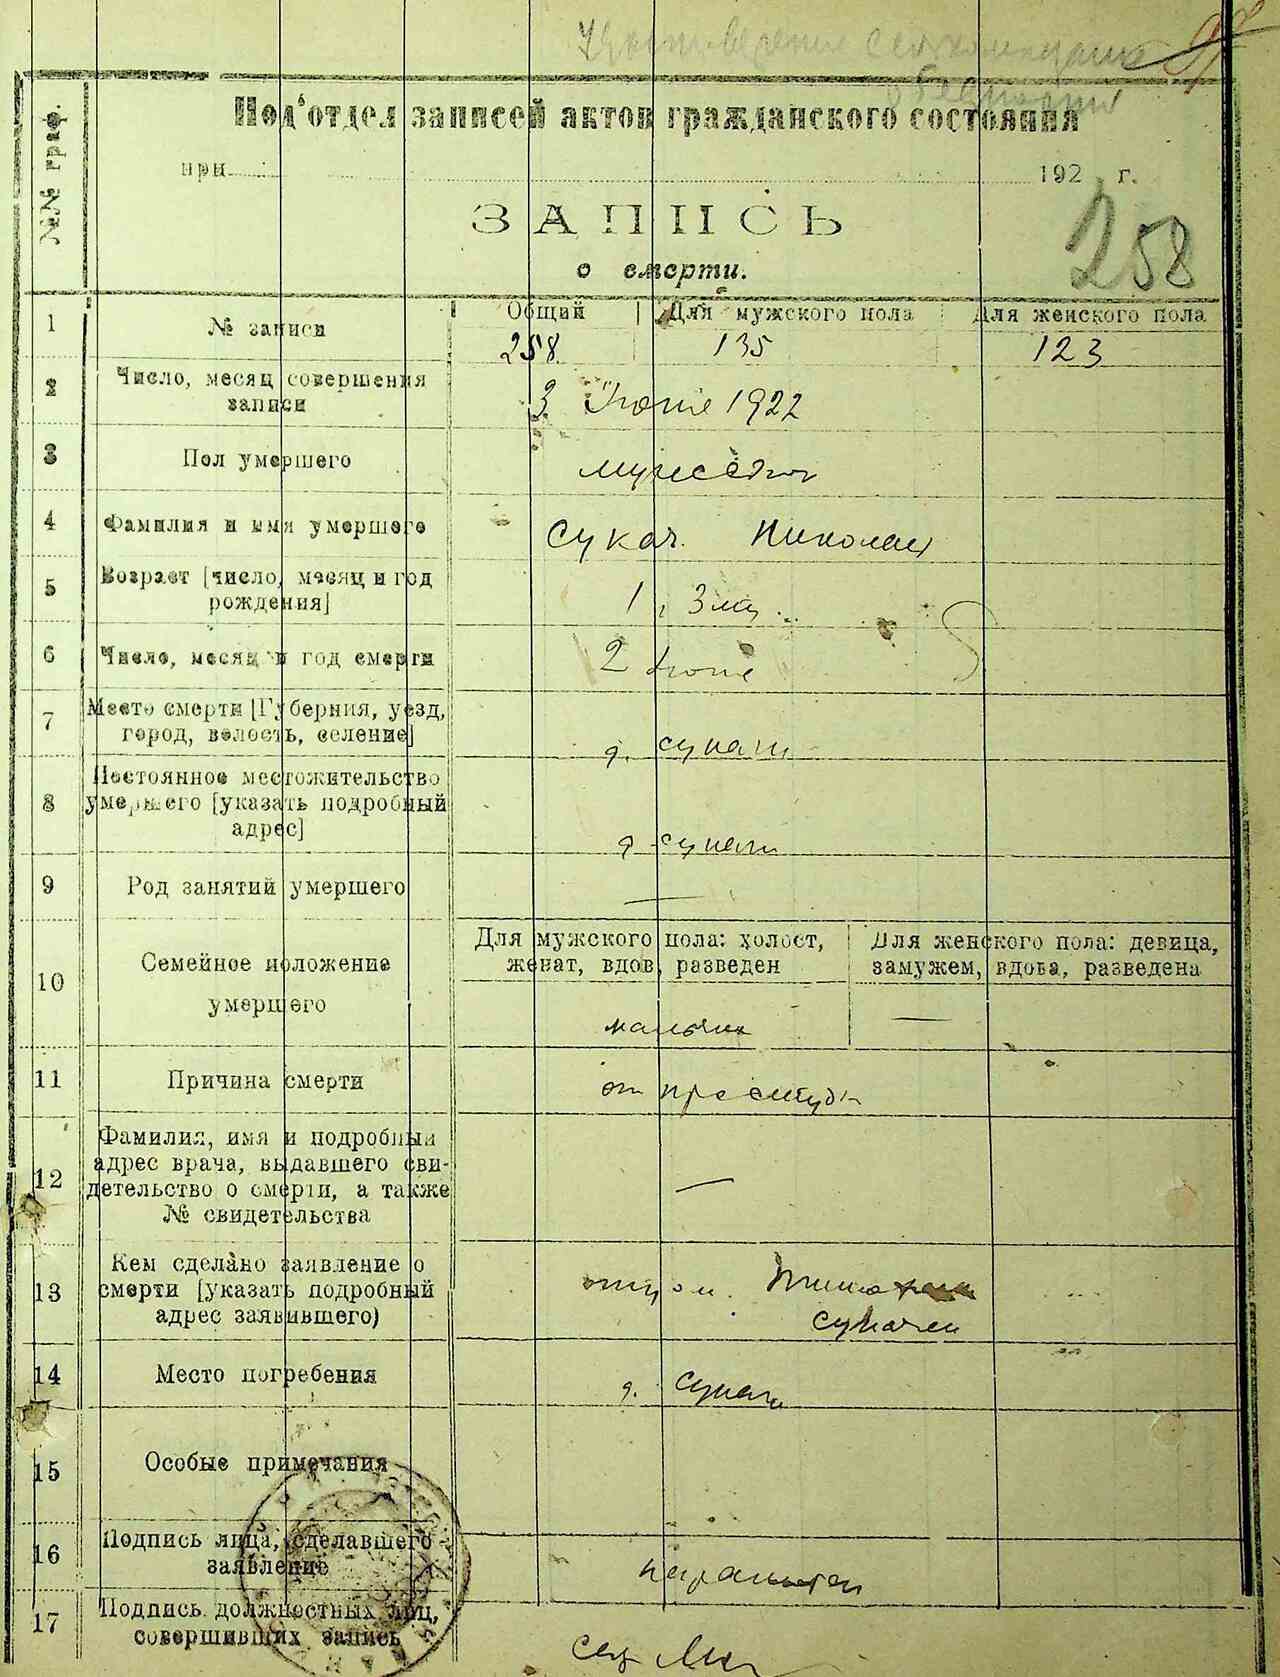 Под'отдел записей актов гражданского состояния
при 192 г.
ЗАПИСЬ
о смерти.
258
№№ граф.
1 № записи Общий Для мужского пола Для женского пола
258 135 123
2 Число, месяц совершения
записи
3 Июня 1922
3 Пол умершего
4 Фамилия и имя умершего Сукач Николай
5 Возраст [число, месяц и год
рождения]
1 г. 3 мц.
6 Число, месяц и год смерти 2 Июня
7 Место смерти [Губерния, уезд,
город, волость, селение]
д. Сукачи
8 Постоянное местожительство
умершего [указать подробный
адрес]
д. Сукачи
9 Род занятий умершего —
10 Семейное положение
умершего
Для мужского пола: холост,
женат, вдов, разведен
Для женского пола: девица,
замужем, вдова, разведена
мальчик —
11 Причина смерти от простуды
12 Фамилия, имя и подробный
адрес врача, выдавшего сви-
детельство о смерти, а также
№ свидетельства
—
13 Кем сделано заявление о
смерти [указать подробный
адрес заявившего)
отцом
14 Место погребения д. Сукачи
15 Особые примечания
16 Подпись лица, сделавшего
заявление
17 Подпись должностных лиц,
совершивших запись